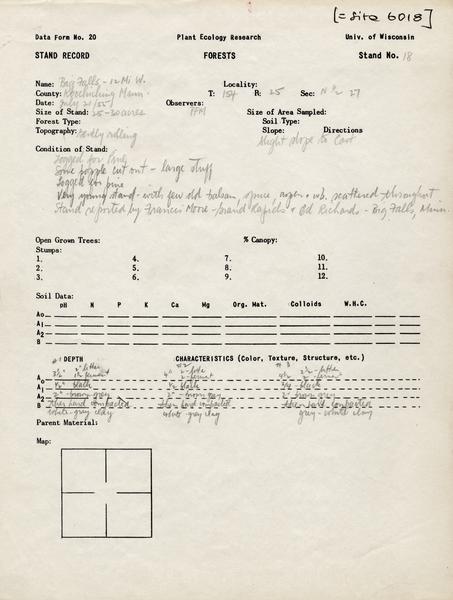 [= site 6018]
Data Form No. 20 Plant Ecology Research Univ. of Wisconsin
STAND RECORD FORESTS Stand No. 18
Name: Big Falls - 12 Mi W. Locality:
County: Koochiching Minn. T: 154 R: 25 Sec: N½ 27
Date: July 21/55 Observers:
Size of Stand: 25-30 acres Size of Area Sampled:
Forest Type: Soil Type:
Topography: gently rolling Slope: Directions
slight slope to East
Condition of Stand:
logged for pine
Some popple cut out - large stuff
logged for pine
Very young stand - with few old balsam, spruce, aspen + wb. scattered throughout
Stand reported by Francis Moore - Grand Rapids + Ed Richards - Big Falls, Minn.
Open Grown Trees: % Canopy:
Stumps:
1. 4. 7. 10.
2. 5. 8. 11.
3. 6. 9. 12.
Soil Data:
pH N P K Ca Mg Org. Mat. Colloids W.H.C.
A₀
A₁
A₂
B
#1 DEPTH #2 CHARACTERISTICS (Color, Texture, Structure, etc.) #3
A₀
A₁ ½" black ½ black 3/4 black
A₂ 2" brown grey 2" brown grey 2" brown grey
B then hard compacted then hard compacted then hard compacted
white-grey clay white grey clay grey-white clay
Parent Material:
Map: